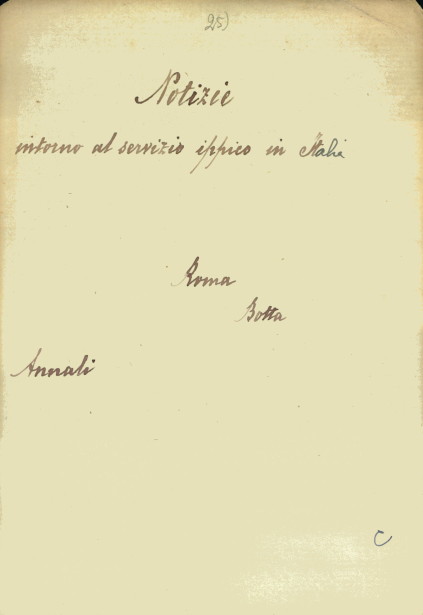 25)
Notizie
intorno al servizio ippico in Italia
Roma
Botta
Annali
C